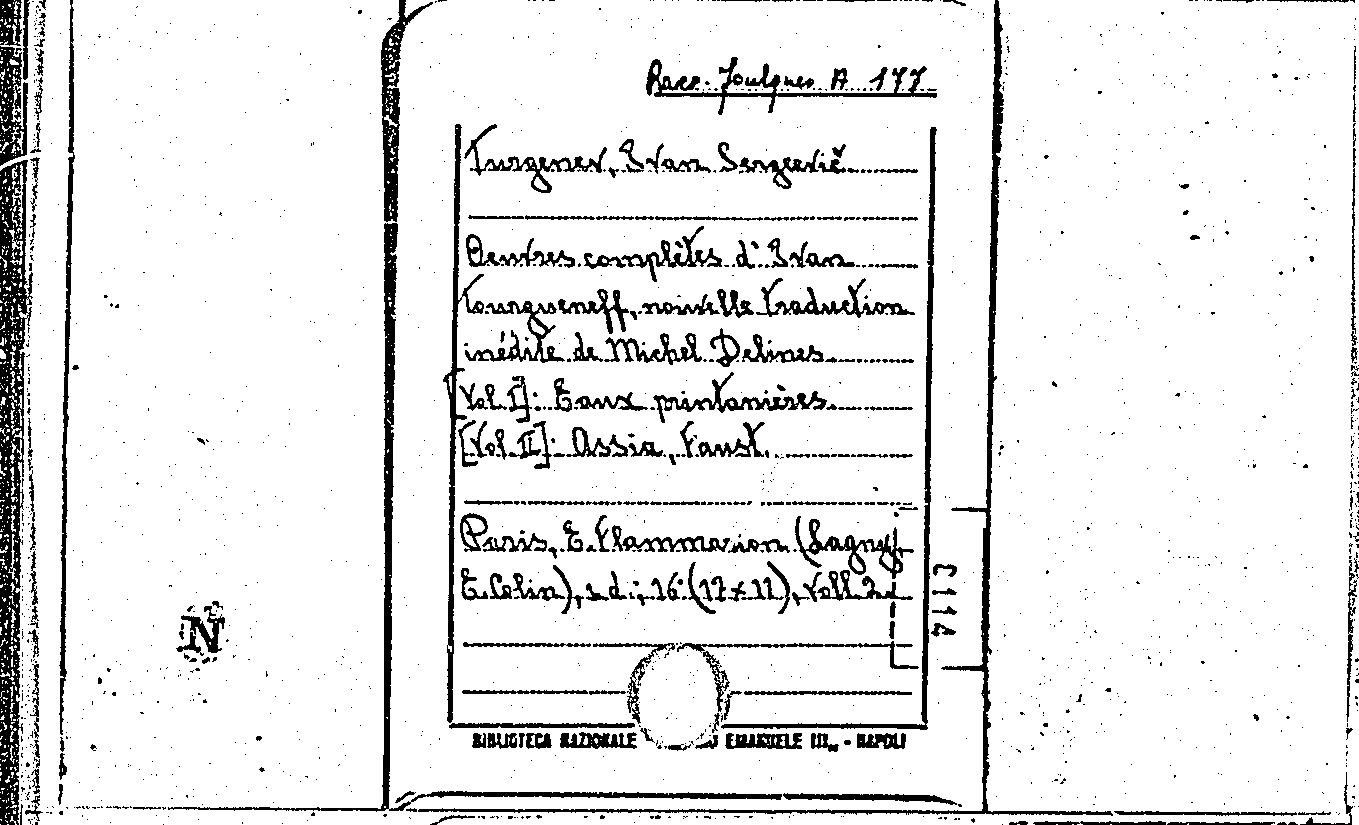 Racc. Foulques A 177
Turgenev, Ivan Sergeevič
Oeuvres complètes d' Ivan
Tourgueneff, nouvelle traduction
inédite de Michel Delines.
[Vol. I]: Eaux printanières.
[Vol. II]: Assia, Faust.
Paris, E. Flammarion (Lagny,
E. Colin), s. d.; 16° (17 x 11), voll. 2.
N
BIBLIOTECA NAZIONALE EMANUELE III" - NAPOLI